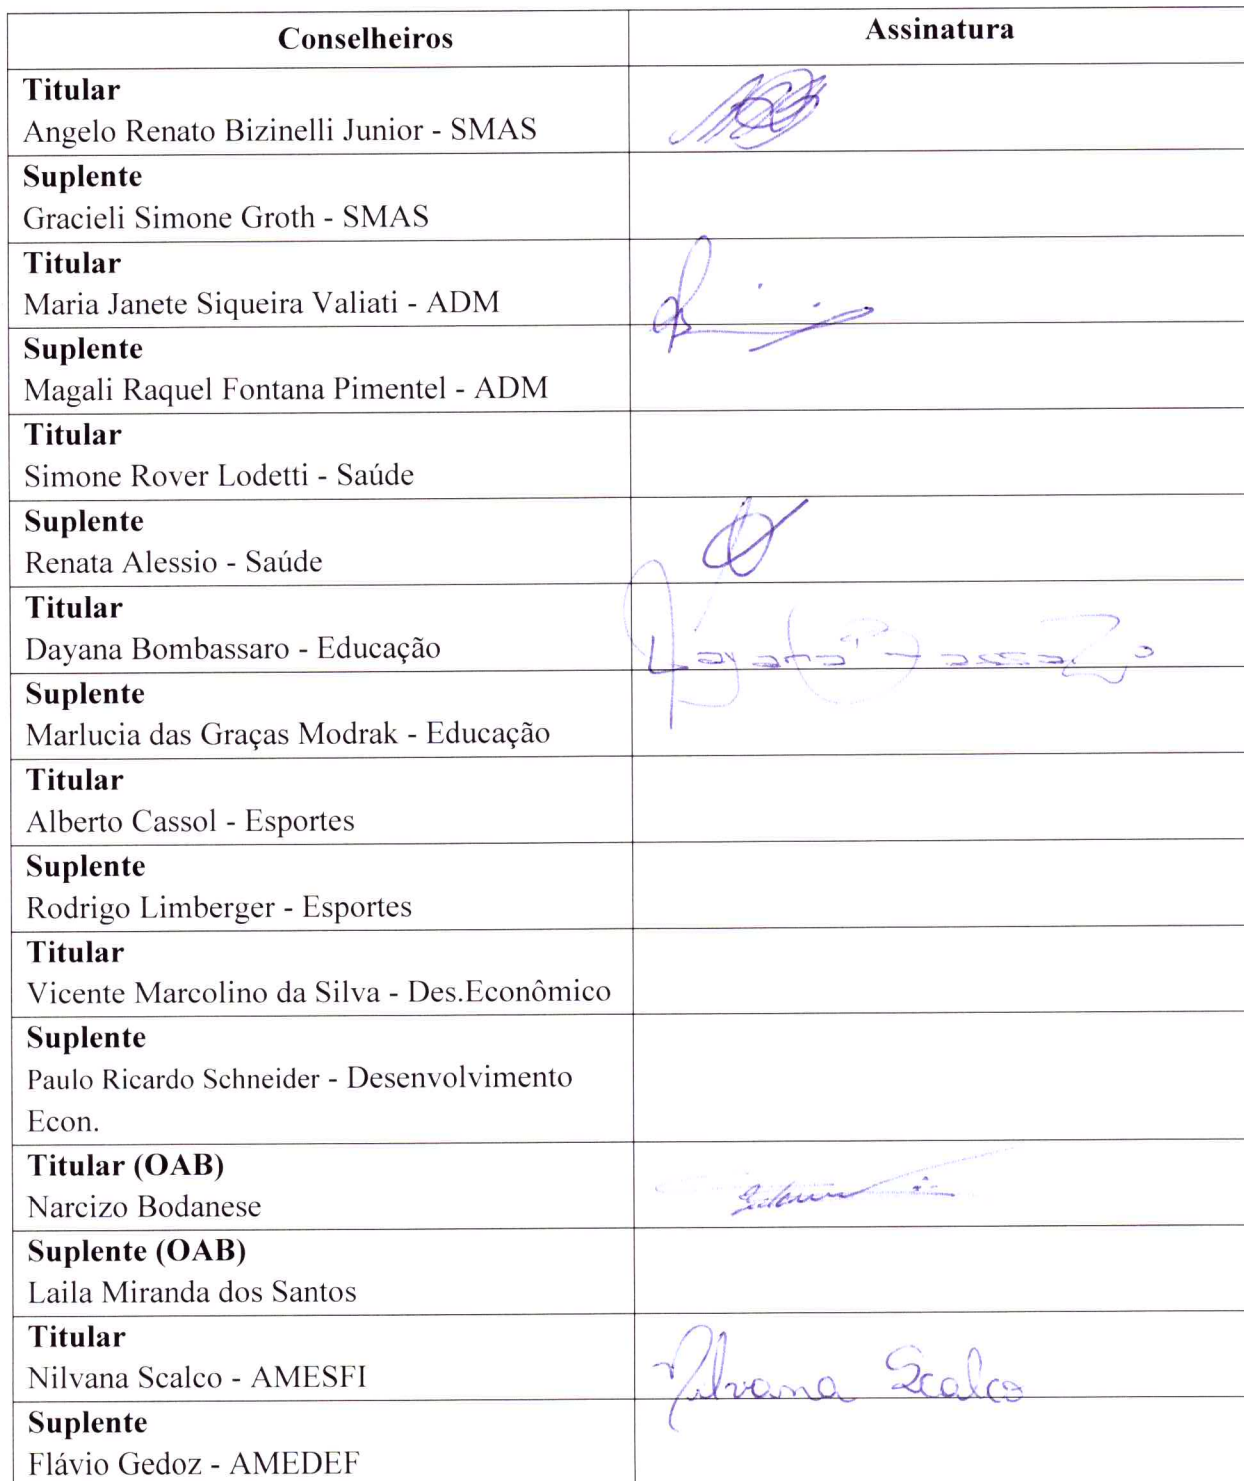 Conselheiros
Assinatura
Titular
Angelo Renato Bizinelli Junior - SMAS
Suplente
Gracieli Simone Groth - SMAS
Titular
Maria Janete Siqueira Valiati - ADM
Suplente
Magali Raquel Fontana Pimentel - ADM
Titular
Simone Rover Lodetti - Saúde
Suplente
Renata Alessio - Saúde
Titular
Dayana Bombassaro - Educação
Suplente
Marlucia das Graças Modrak - Educação
Titular
Alberto Cassol - Esportes
Suplente
Rodrigo Limberger - Esportes
Titular
Vicente Marcolino da Silva - Des.Econômico
Suplente
Paulo Ricardo Schneider - Desenvolvimento
Econ.
Titular (OAB)
Narcizo Bodanese
Suplente (OAB)
Laila Miranda dos Santos
Titular
Nilvana Scalco - AMESFI
Nilvana Scalco
Suplente
Flávio Gedoz - AMEDEF